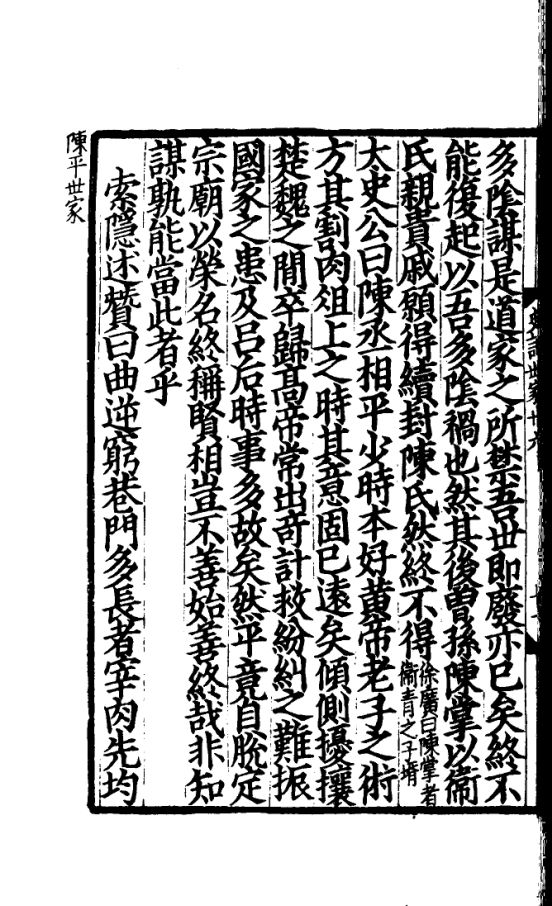 多陰謀是道家之所禁吾世即廢亦已矣終不
能復起以吾多陰禍也然其後曾孫陳掌以衞
氏親貴戚願得續封陳氏然終不得徐廣曰陳掌者衞青之子壻
太史公曰陳丞相平少時本好黄帝老子之術
方其割肉俎上之時其意固已遠矣傾側擾攘
楚魏之間卒歸髙帝常出奇計救紛糾之難振
國家之患及吕后時事多故矣然平竟自脫定
宗廟以榮名終稱賢相豈不善始善終哉非知
謀孰能當此者乎
索隱述贊曰曲逆窮巷門多長者宰肉先均
陳平世家